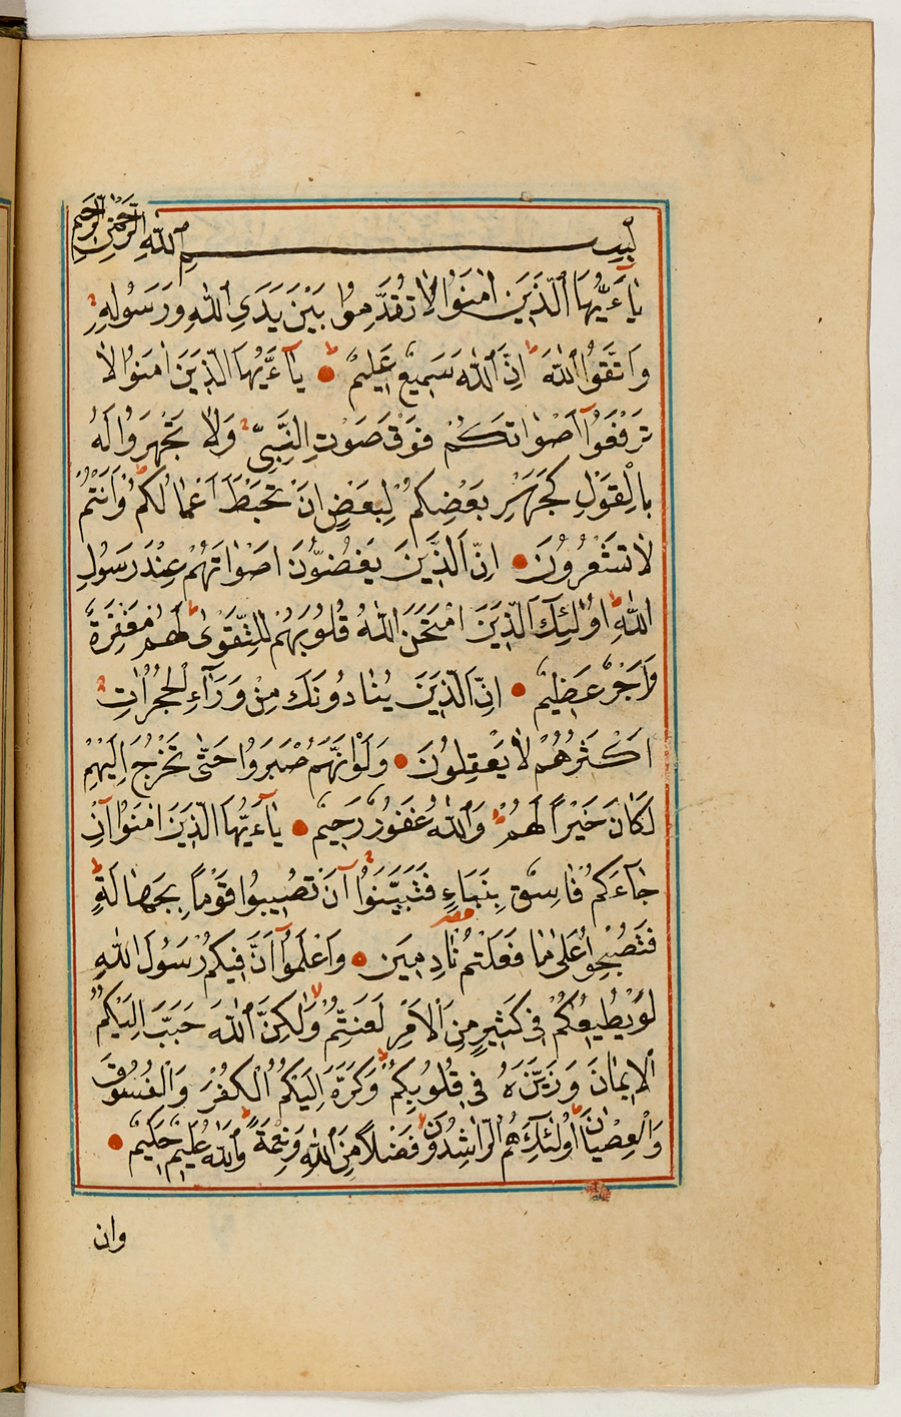 بِسْمِ اللّٰهِ الرَّحْمٰنِ الرَّحِيمِ
يَاءَيُّهَا الَّذِينَ اٰمَنُوا لَا تُقَدِّمُوا بَيْنَ يَدَيِ اللّٰهِ وَرَسُولِهِ
وَاتَّقُوا اللّٰهَ اِنَّ اللّٰهَ سَمِيعٌ عَلِيمٌ يَاءَيُّهَا الَّذِينَ اٰمَنُوا لَا
تَرْفَعُوا اَصْوَاتَكُمْ فَوْقَ صَوْتِ النَّبِيِّ وَلَا تَجْهَرُوا لَهُ
بِالْقَوْلِ كَجَهْرِ بَعْضِكُمْ لِبَعْضٍ اَنْ تَحْبَطَ اَعْمَالُكُمْ وَاَنْتُمْ
لَا تَشْعُرُونَ اِنَّ الَّذِينَ يَغُضُّونَ اَصْوَاتَهُمْ عِنْدَ رَسُولِ
اللّٰهِ اُولٰئِكَ الَّذِينَ امْتَحَنَ اللّٰهُ قُلُوبَهُمْ لِلتَّقْوٰى لَهُمْ مَغْفِرَةٌ
وَاَجْرٌ عَظِيمٌ اِنَّ الَّذِينَ يُنَادُونَكَ مِنْ وَرَاءِ الْحُجُرَاتِ
اَكْثَرُهُمْ لَا يَعْقِلُونَ وَلَوْ اَنَّهُمْ صَبَرُوا حَتّٰى تَخْرُجَ اِلَيْهِمْ
لَكَانَ خَيْرًا لَهُمْ وَاللّٰهُ غَفُورٌ رَحِيمٌ يَاءَيُّهَا الَّذِينَ اٰمَنُوا اِنْ
جَاءَكُمْ فَاسِقٌ بِنَبَاءٍ فَتَبَيَّنُوا اَنْ تُصِيبُوا قَوْمًا بِجَهَالَةٍ
فَتُصْبِحُوا عَلٰى مَا فَعَلْتُمْ نَادِمِينَ وَاعْلَمُوا اَنَّ فِيكُمْ رَسُولَ اللّٰهِ
لَوْ يُطِيعُكُمْ فِي كَثِيرٍ مِنَ الْاَمْرِ لَعَنِتُّمْ وَلٰكِنَّ اللّٰهَ حَبَّبَ اِلَيْكُمُ
الْاِيمَانَ وَزَيَّنَهُ فِي قُلُوبِكُمْ وَكَرَّهَ اِلَيْكُمُ الْكُفْرَ وَالْفُسُوقَ
وَالْعِصْيَانَ اُولٰئِكَ هُمُ الرَّاشِدُونَ فَضْلًا مِنَ اللّٰهِ وَنِعْمَةً وَاللّٰهُ عَلِيمٌ حَكِيمٌ
وان